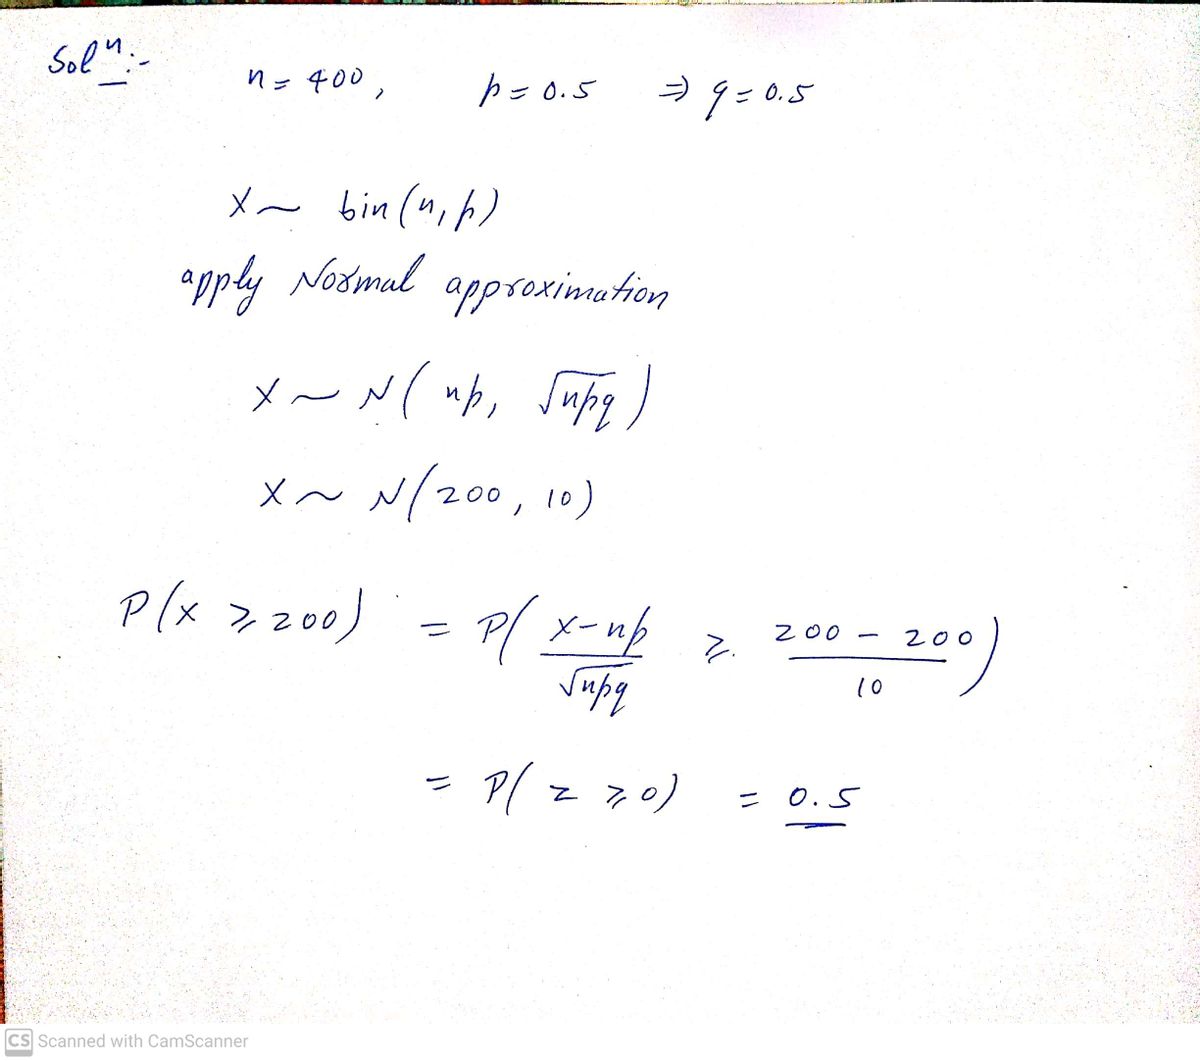 Solⁿ:-
n = 400, p = 0.5 ⇒ q = 0.5
X ~ bin(n, p)
apply Normal approximation
X ~ N(np, √npq)
X ~ N(200, 10)
P(X ⩾ 200) = P( (X-np)/√npq ⩾ (200 - 200)/10 )
= P(Z ⩾ 0) = 0.5
CS Scanned with CamScanner